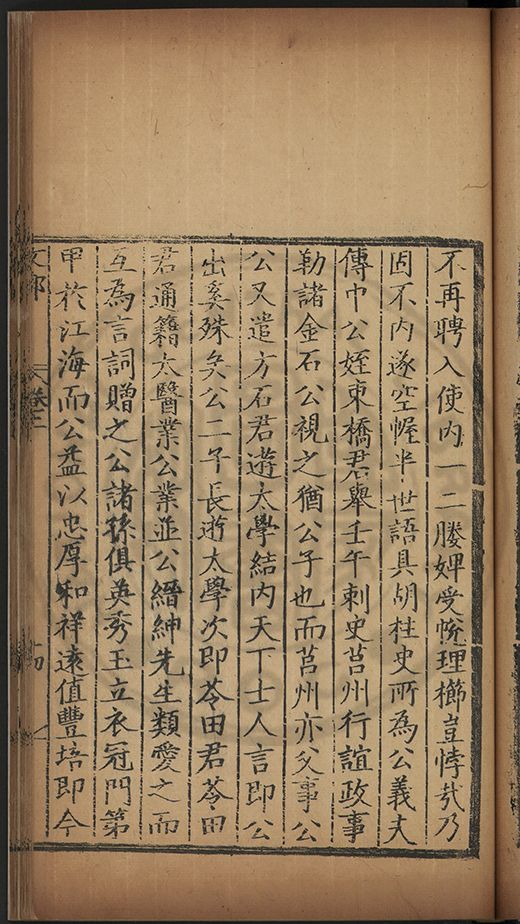 不再聘入使內一二媵婢受帨理櫛豈悖㦲乃
固不內遂空幄半世語具胡柱史所為公義夫
傳中公姪東橋君舉壬午刺史莒州行誼政事
勒諸金石公視之猶公子也而莒州亦父事公
公又遣方石君遊太學結內天下士人言即公
出奚殊矣公二子長遊太學次即苓田君苓田
君通籍太醫業公業並公縉紳先生類愛之而
互為言詞贈之公諸孫俱英秀玉立衣冠門第
甲於江海而公益以忠厚和祥遠值豐培即今
文部 卷三